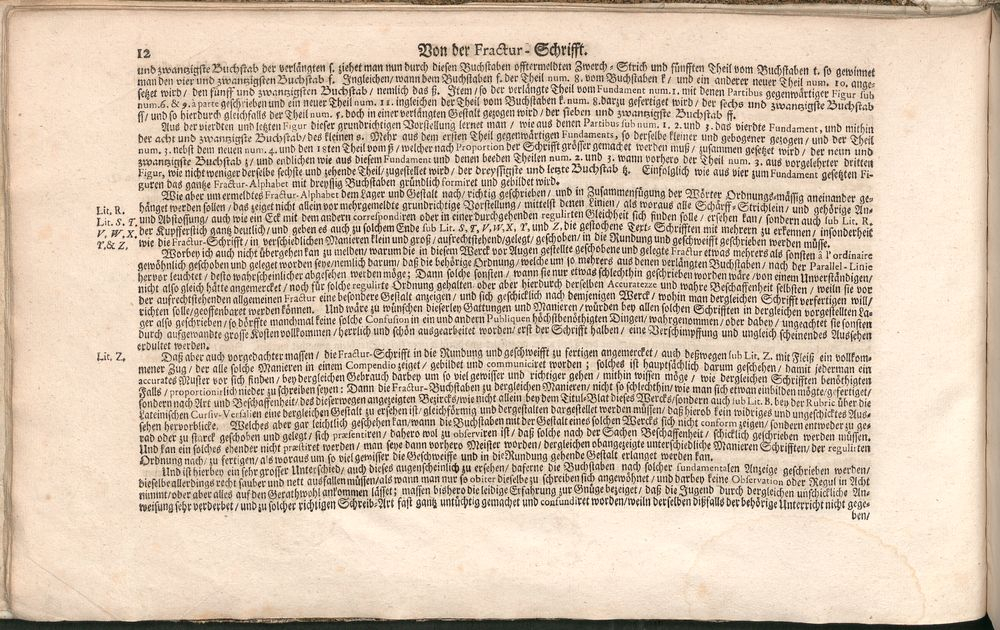 12
Von der Fractur-Schrifft.
und zwantzigste Buchstab der verlängten ſ. ziehet man nun durch diesen Buchstaben offtermeldten Zwerch-Strich und fünfften Theil vom Buchstaben t. so gewinnet
man den vier und zwantzigsten Buchstab f. Ingleichen/ wann dem Buchstaben ſ. der Theil num. 8. vom Buchstaben k/ und ein anderer neuer Theil num. 10. ange-
setzt wird/ den fünff und zwantzigsten Buchstab/ nemlich das ß. Item/ so der verlängte Theil vom Fundament num. 1. mit denen Partibus gegenwärtiger Figur sub
num. 6. & 9. à parte geschrieben und ein neuer Theil num. 11. ingleichen der Theil vom Buchstaben k. num. 8. darzu gefertiget wird/ der sechs und zwantzigste Buchstab
ff/ und so hierdurch gleichfals der Theil num. 5. doch in einer verlängten Gestalt gezogen wird/ der sieben und zwantzigste Buchstab ff.
Aus der vierdten und letzten Figur dieser grundrichtigen Vorstellung lernet man/ wie aus denen Partibus sub num. 1. 2. und 3. das vierdte Fundament, und mithin
der acht und zwantzigste Buchstab/ des kleinen s. Mehr aus dem ersten Theil gegenwärtigen Fundaments, so derselbe kleiner und gebogener gezogen/ und der Theil
num. 3. nebst dem neuen num. 4. und den 1sten Theil vom ß/ welcher nach Proportion der Schrifft grösser gemachet werden muß/ zusammen gesetzt wird/ der neun und
zwantzigste Buchstab z/ und endlichen wie aus diesem Fundament und denen beeden Theilen num. 2. und 3. wann vorhero der Theil num. 3. aus vorgelehrter dritten
Figur, wie nicht weniger derselbe sechste und zehende Theil/ zugestellet wird/ der dreyssigste und letzte Buchstab tz. Einfolglich wie aus vier zum Fundament gesetzten Fi-
guren das gantze Fractur-Alphabet mit dreyssig Buchstaben gründlich formiret und gebildet wird.
Wie aber um ermeldtes Fractur-Alphabet dem Lager und Gestalt nach/ richtig geschrieben/ und in Zusammenfügung der Wörter Ordnungs-mässig aneinander ge-
hänget werden sollen/ das zeiget nicht allein vor mehrgemeldte grundrichtige Vorstellung/ mittelst denen Linien/ als woraus alle Schärff-Strichlein/ und gehörige An-
Lit. R. und Abstossung/ auch wie ein Eck mit dem andern correspondiren oder in einer durchgehenden regulirten Gleichheit sich finden solle/ ersehen kan/ sondern auch sub Lit. R.
Lit. S. T. der Kupfferstich gantz deutlich/ und geben es auch zu solchem Ende sub Lit. S, T, V, W, X, Y, und Z, die gestochene Text-Schrifften mit mehrern zu erkennen/ insonderheit
V, W, X, wie die Fractur-Schrifft/ in verschiedlichen Manieren klein und groß/ aufrechtstehend/ gelegt/ geschoben/ in die Rundung und geschweifft geschrieben werden müsse.
Y, & Z,
Worbey ich auch nicht übergehen kan zu melden/ warum die in diesem Werck vor Augen gestellte geschobene und gelegte Fractur etwas mehrers als sonsten à l'ordinaire
gewöhnlich geschoben und geleget worden seye/ nemlich darum/ daß die behörige Ordnung/ welche um so mehrers aus denen verlängten Buchstaben/ nach der Parallel-Linie
hervor leuchtet/ desto wahrscheinlicher abgesehen werden möge; Dann solche sonsten/ wann sie nur etwas schlechthin geschrieben worden wäre/ von einem Unverständigen/
nicht also gleich hätte angemercket/ noch für solche regulirte Ordnung gehalten oder aber hierdurch derselben Accuratezze und wahre Beschaffenheit selbsten/ weiln sie vor
der aufrechtstehenden allgemeinen Fractur eine besondere Gestalt anzeigen/ und sich geschicklich nach demjenigen Werck/ wohin man dergleichen Schrifft verfertigen will/
richten solle/ geoffenbaret werden können. Und wäre zu wünschen dieserley Gattungen und Manieren/ würden bey allen solchen Schrifften in dergleichen vorgestellten La-
ger also geschrieben/ so dörffte manchmal keine solche Confusion in ein und andern Publiquen höchstbenöthigten Dingen/ wahrgenommen/ oder dabey/ ungeachtet sie sonsten
durch aufgewandte grosse Kosten vollkommen/ herrlich und schön ausgearbeitet worden/ erst der Schrifft halben/ eine Verschimpffung und ungleich scheinendes Aussehen
erdultet werden.
Lit. Z. Daß aber auch vorgedachter massen/ die Fractur-Schrifft in die Rundung und geschweifft zu fertigen angemercket/ auch deßwegen sub Lit. Z. mit Fleiß ein vollkom-
mener Zug/ der alle solche Manieren in einem Compendio zeiget/ gebildet und communiciret worden; solches ist hauptsächlich darum geschehen/ damit jederman ein
accurates Muster vor sich finden/ bey dergleichen Gebrauch darbey um so viel gewisser und richtiger gehen/ mithin wissen möge/ wie dergleichen Schrifften benöthigten
Falls/ proportionirlich nieder zu schreiben seyen: Dann die Fractur-Buchstaben zu dergleichen Manieren/ nicht so schlechthin/ wie man sich etwan einbilden mögte/ gefertiget/
sondern nach Art und Beschaffenheit/ des dieserwegen angezeigten Bezircks/ wie nicht allein bey dem Titul-Blat dieses Wercks/ sondern auch sub Lit. B. bey der Rubric über die
Lateinischen Cursiv-Versalien eine dergleichen Gestalt zu ersehen ist/ gleichförmig und dergestalten dargestellet werden müssen/ daß hierob kein widriges und ungeschicktes Aus-
sehen hervorblicke. Welches aber gar leichtlich geschehen kan/ wann die Buchstaben mit der Gestalt eines solchen Wercks sich nicht conform zeigen/ sondern entweder zu ge-
rad oder zu starck geschoben und gelegt/ sich præsentiren/ dahero wol zu observiren ist/ daß solche nach der Sachen Beschaffenheit/ schicklich geschrieben werden müssen.
Und kan ein solches ehender nicht præstiret werden/ man seye dann vorhero Meister worden/ dergleichen obangezeigte unterschiedliche Manieren Schrifften/ der regulirten
Ordnung nach/ zu fertigen/ als woraus um so viel gewisser die Geschweiffe und in die Rundung gehende Gestalt erlanget werden kan.
Und ist hierbey ein sehr grosser Unterschied/ auch dieses augenscheinlich zu ersehen/ daferne die Buchstaben nach solcher fundamentalen Anzeige geschrieben werden/
dieselbe allerdings recht sauber und nett ausfallen müssen/ als wann man nur so obiter dieselbe zu schreiben sich angewöhnet/ und darbey keine Observation oder Regul in Acht
nimmt/ oder aber alles auf den Gerathwohl ankommen lässet; massen bishero die leidige Erfahrung zur Gnüge bezeiget/ daß die Jugend durch dergleichen unschickliche An-
weisung sehr verderbet/ und zu solcher richtigen Schreib-Art fast gantz untüchtig gemachet und confundiret worden/ weiln derselben dißfalls der behörige Unterricht nicht gege-
ben/